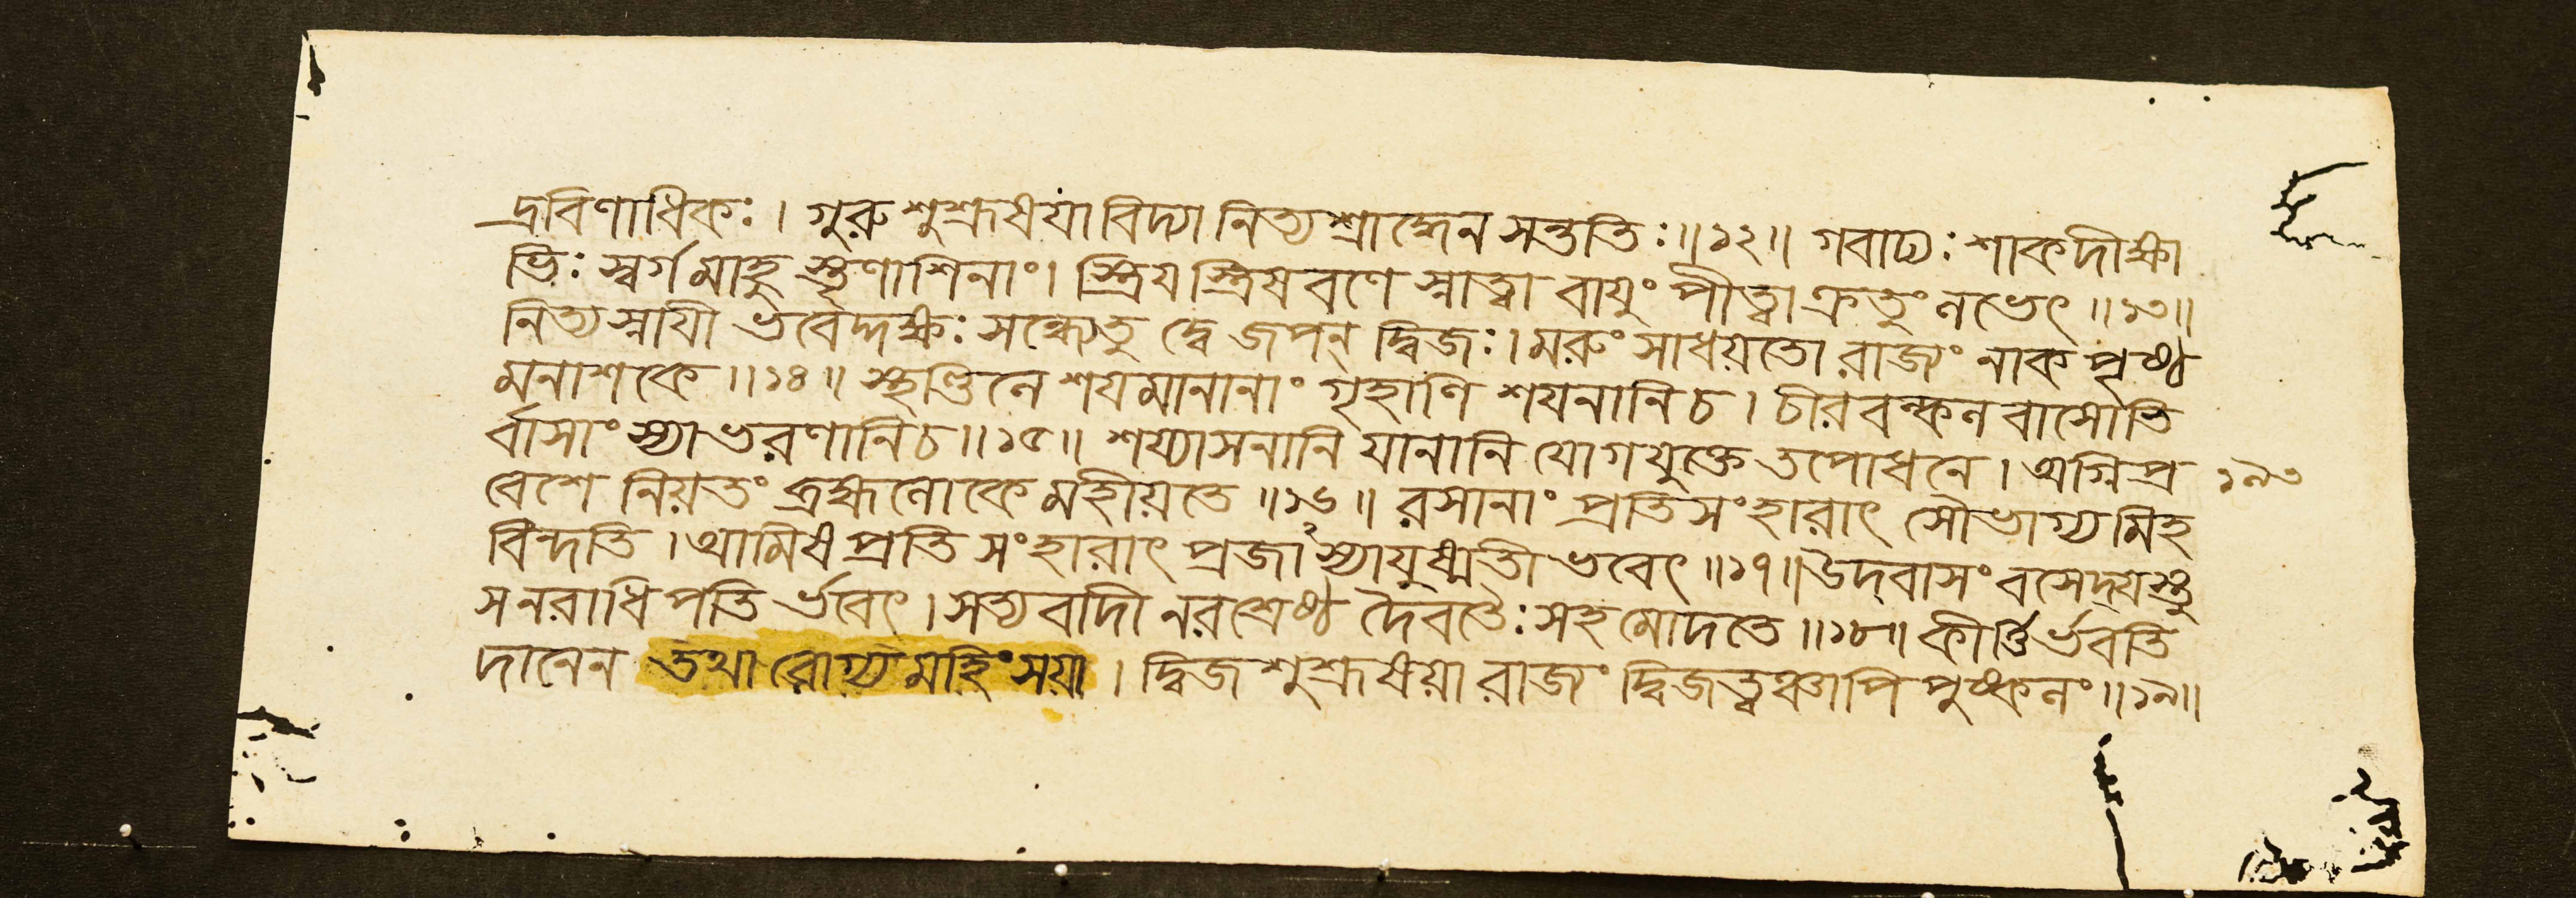 দ্রবিণাধিকঃ। গুরু শুশ্রূষযা বিদ্যা নিত্যশ্রাদ্ধেন সন্ততিঃ॥১২॥ গবাঢ্যঃ শাকদীক্ষা
ভিঃ স্বর্গমাহু স্তৃণাশিনাং। স্ত্রিযস্ত্রিষবণে স্নাত্বা বাযুং পীত্বা ক্রতুং লভেৎ॥১৩॥
নিত্যস্নাযী ভবেদ্দক্ষঃ সন্ধ্যেতু দ্বে জপন্ দ্বিজঃ। মরুং সাধয়তো রাজ্যং নাক পৃষ্ঠ
মনাশকে॥১৪॥ স্থণ্ডিলে শযমানানাং গৃহাণি শযনানি চ। চীরবল্কল বাসোভি
র্বাসাংস্যাভরণানি চ॥১৫॥ শয্যাসনানি যানানি যোগযুক্তে তপোধনে। অগ্নিপ্র
বেশে নিয়তং ব্রহ্মলোকে মহীয়তে॥১৬॥ রসানাং প্রতিসংহারাৎ সৌভাগ্যমিহ
বিন্দতি। আমিষ প্রতিসংহারাৎ প্রজাংস্যাযুষ্মতী ভবেৎ॥১৭॥ উদ্‌বাসং বসেদ্‌যস্তু
স নরাধিপতি র্ভবেৎ। সত্যবাদী নরশ্রেষ্ঠ দৈবতৈঃ সহ মোদতে॥১৮॥ কীর্ত্তির্ভবতি
দানেন তথারোগ্যমহিংসয়া। দ্বিজশুশ্রূষয়া রাজ্যং দ্বিজত্বঞ্চাপি পুষ্কলং॥১৯॥
১৯৩